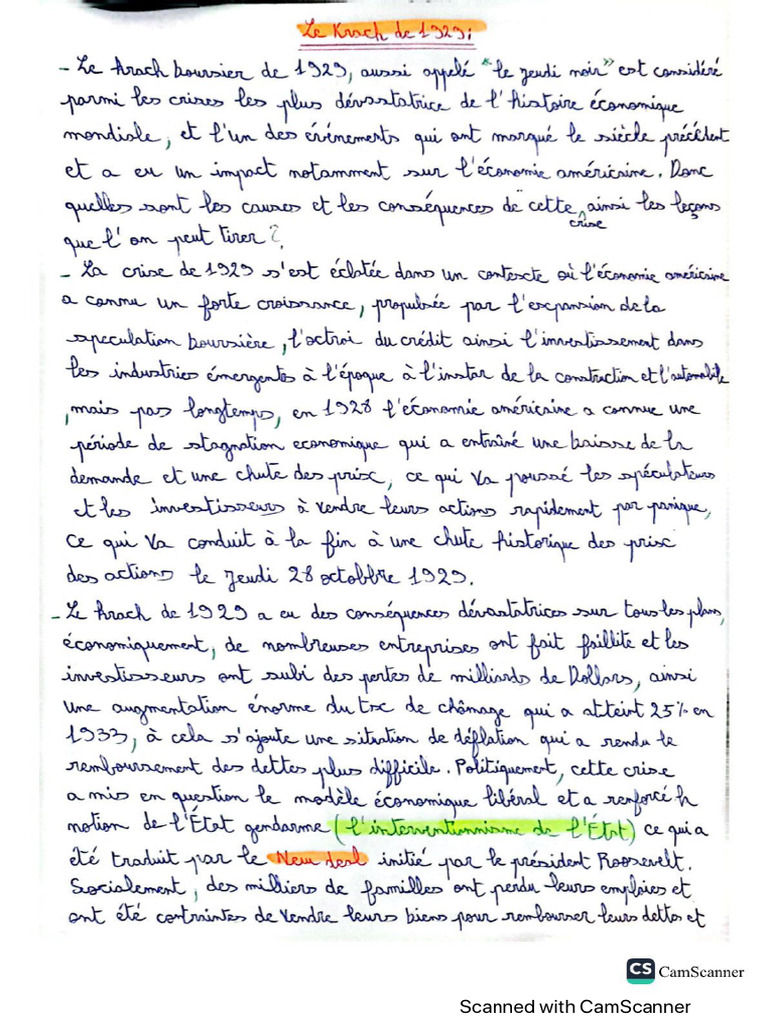 Le Krach de 1929:
- Le krach boursier de 1929, aussi appelé "le jeudi noir" est considéré
parmi les crises les plus dévastatrice de l'histoire économique
mondiale, et l'un des événements qui ont marqué le siècle précédent
et a eu un impact notamment sur l'économie américaine. Donc
quelles sont les causes et les conséquences de cette crise, ainsi les leçons
que l'on peut tirer?
- La crise de 1929 s'est éclatée dans un contexte où l'économie américaine
a connu un forte croissance, propulsée par l'expansion de la
speculation boursière, l'octroi du crédit ainsi l'investissement dans
les industries émergentes à l'époque à l'instar de la construction et l'automobile
, mais pas longtemps, en 1928 l'économie américaine a connue une
période de stagnation economique qui a entraîné une baisse de la
demande et une chute des prix, ce qui va poussé les spéculateurs
et les investisseurs à vendre leurs actions rapidement par panique,
ce qui va conduit à la fin à une chute historique des prix
des actions le jeudi 28 octobbre 1929.
- Le krach de 1929 a eu des conséquences dévastatrices sur tous les plans,
économiquement, de nombreuses entreprises ont fait faillite et les
investisseurs ont subi des pertes de milliards de Dollars, ainsi
une augmentation énorme du tx de chômage qui a atteint 25% en
1933, à cela s'ajoute une situation de déflation qui a rendu le
remboursement des dettes plus difficile. Politiquement, cette crise
a mis en question le modèle économique libéral et a renforcé la
notion de l'État gendarme (l'interventionnisme de l'État) ce qui a
été traduit par le New deal initié par le président Roosevelt.
Socialement, des milliers de familles ont perdu leurs emploies et
ont été contraintes de vendre leurs biens pour rembourser leurs dettes et
CS CamScanner
Scanned with CamScanner